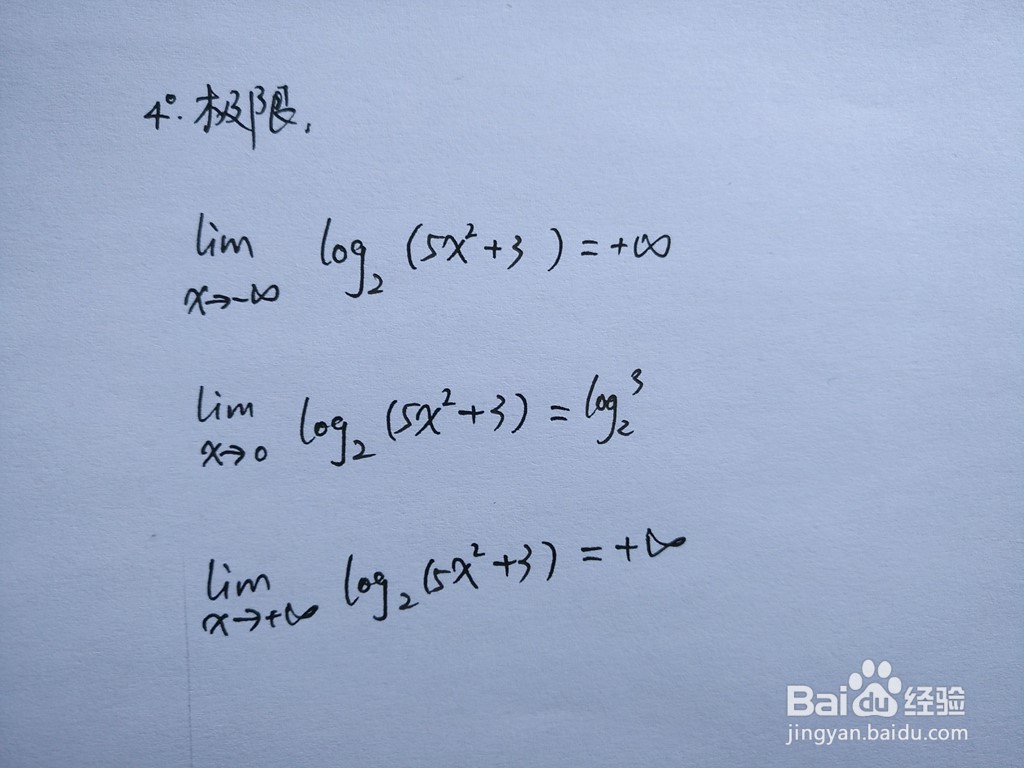 4°. 极限.
lim log₂ (5x²+3) = +∞
x→-∞
lim log₂ (5x²+3) = log₂³
x→0
lim log₂ (5x²+3) = +∞
x→+∞
Baidu 经验
jingyan.baidu.com